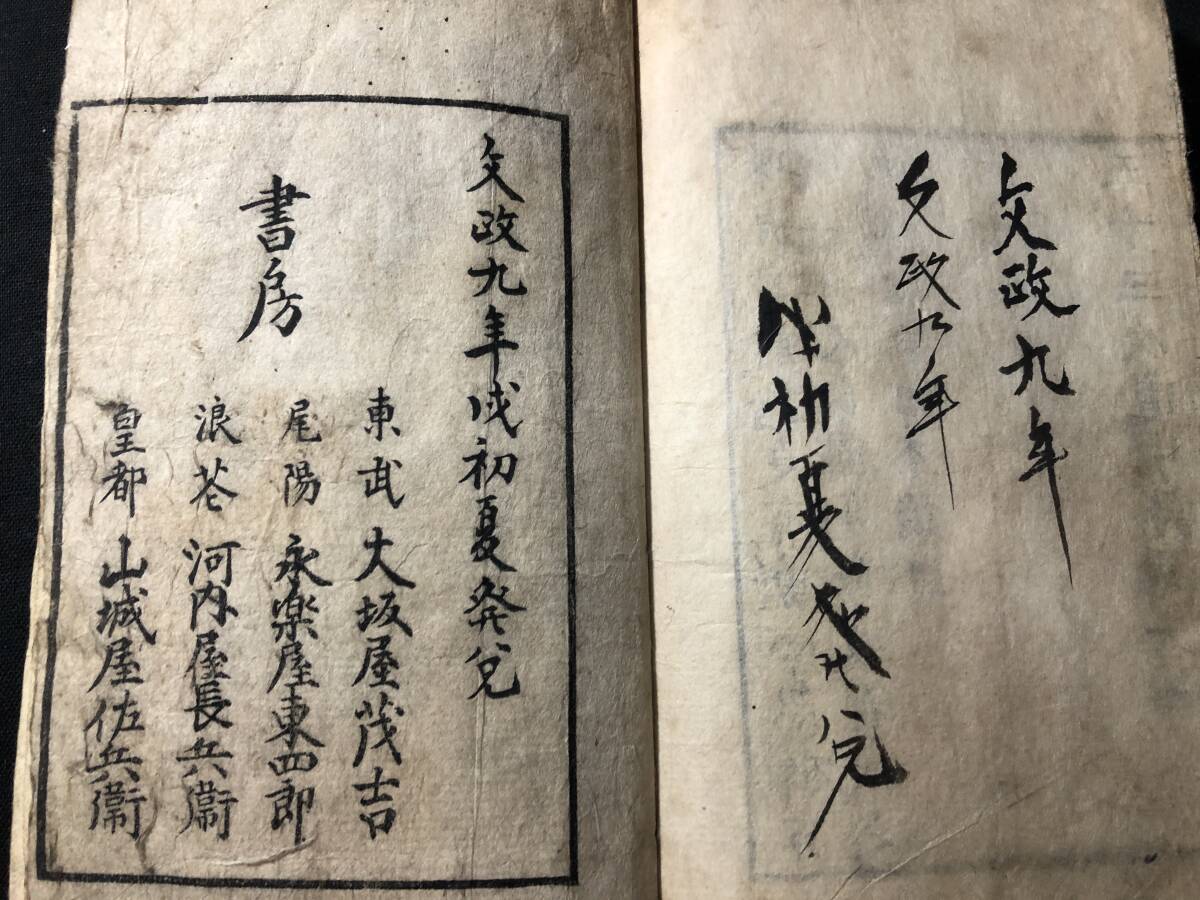 文政九年
文政九年
戌初夏発兌
文政九年戌初夏発兌
書房
東武 大坂屋茂吉
尾陽 永楽屋東四郎
浪花 河内屋長兵衛
皇都 山城屋佐兵衛